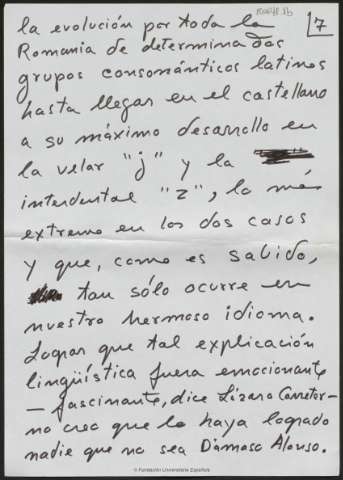 la evolución por toda la
7
Romania de determinados
grupos consonánticos latinos
hasta llegar en el castellano
a su máximo desarrollo en
la velar "j" y la
interdental "z", lo más
extremo en los dos casos
y que, como es sabido,
tan sólo ocurre en
nuestro hermoso idioma.
Lograr que tal explicación
lingüística fuera emocionante
— fascinante, dice Lázaro Carreter —
no creo que lo haya logrado
nadie que no sea Dámaso Alonso.
© Fundación Universitaria Española